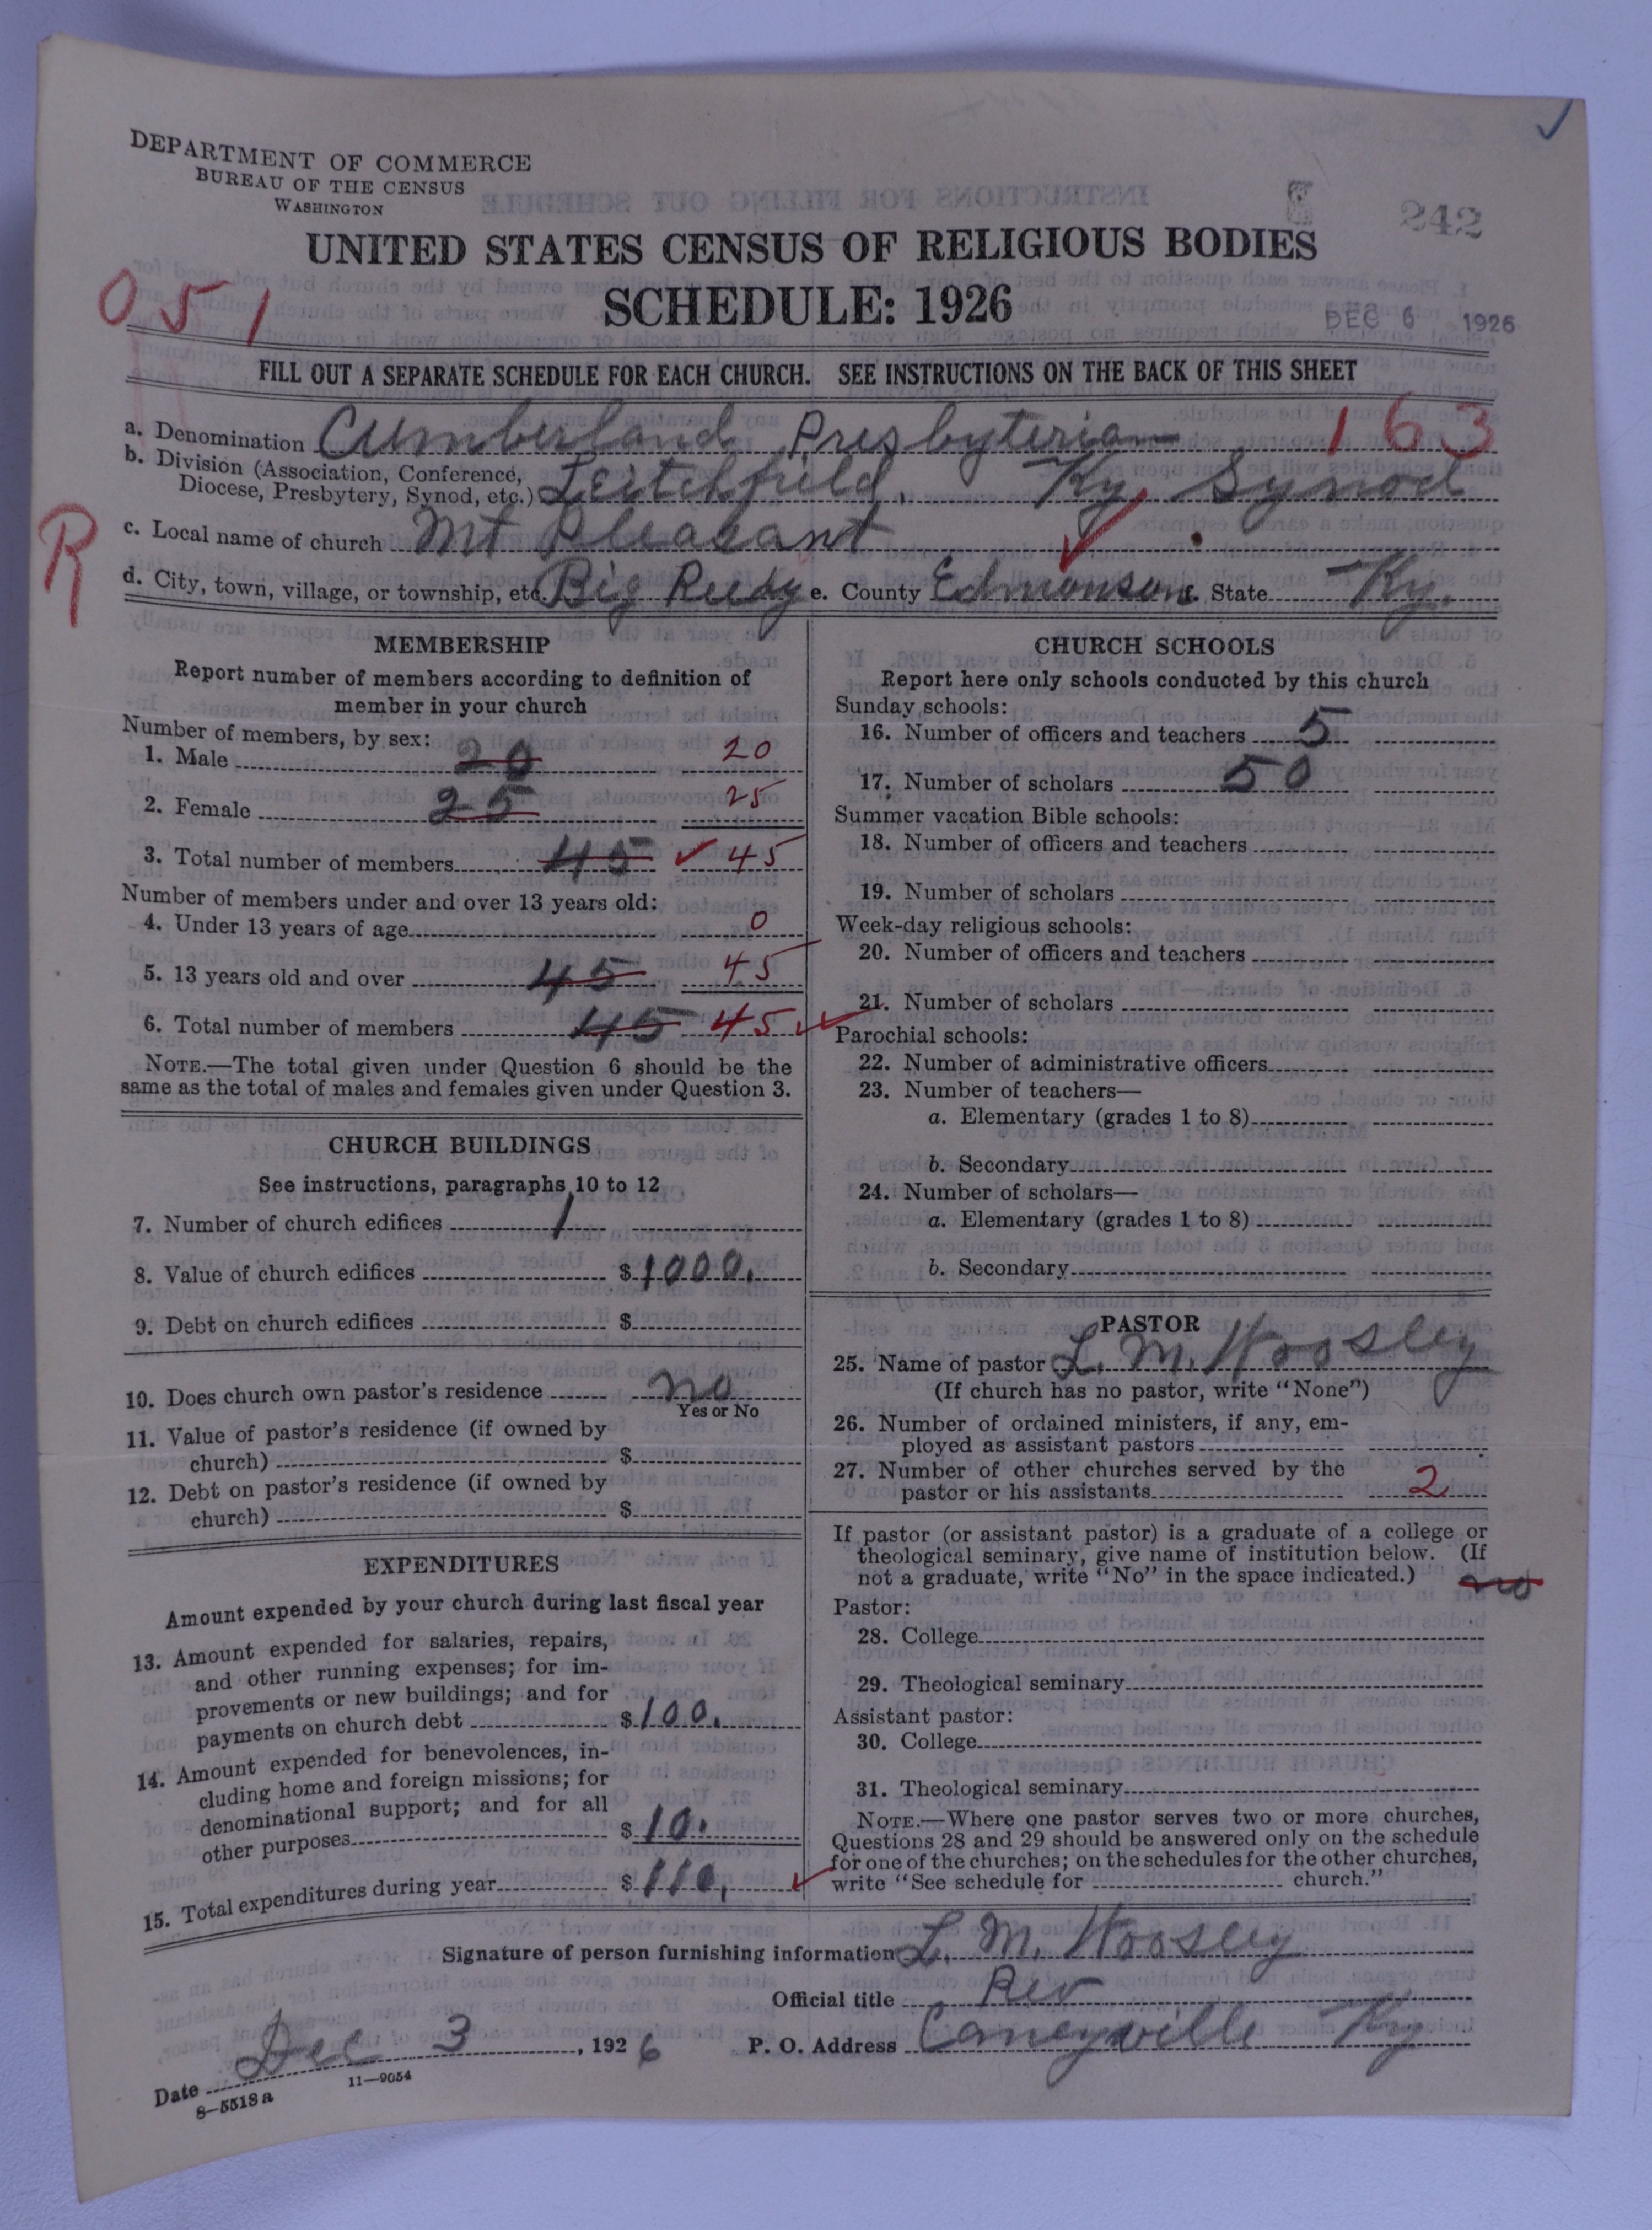 DEPARTMENT OF COMMERCE
BUREAU OF THE CENSUS
WASHINGTON
242
UNITED STATES CENSUS OF RELIGIOUS BODIES
SCHEDULE: 1926
051
DEC 6 1926
FILL OUT A SEPARATE SCHEDULE FOR EACH CHURCH. SEE INSTRUCTIONS ON THE BACK OF THIS SHEET
a. Denomination Cumberland Presbyterian 163
b. Division (Association, Conference,
Diocese, Presbytery, Synod, etc.) Leitchfield, Ky. Synod
R
c. Local name of church Mt Pleasant
d. City, town, village, or township, etc. Big Reedy e. County Edmonson f. State Ky.
MEMBERSHIP
Report number of members according to definition of
member in your church
Number of members, by sex:
1. Male 20 20
2. Female 25 25
3. Total number of members 45 ✓ 45
Number of members under and over 13 years old:
4. Under 13 years of age 0
5. 13 years old and over 45 45
6. Total number of members 45 45 ✓
NOTE.—The total given under Question 6 should be the
same as the total of males and females given under Question 3.
CHURCH BUILDINGS
See instructions, paragraphs 10 to 12
7. Number of church edifices 1
8. Value of church edifices $1000.
9. Debt on church edifices $
10. Does church own pastor's residence no
Yes or No
11. Value of pastor's residence (if owned by
church) $
12. Debt on pastor's residence (if owned by
church) $
EXPENDITURES
Amount expended by your church during last fiscal year
13. Amount expended for salaries, repairs,
and other running expenses; for im-
provements or new buildings; and for
payments on church debt $100.
14. Amount expended for benevolences, in-
cluding home and foreign missions; for
denominational support; and for all
other purposes $10.
15. Total expenditures during year $110. ✓
CHURCH SCHOOLS
Report here only schools conducted by this church
Sunday schools:
16. Number of officers and teachers 5
17. Number of scholars 50
Summer vacation Bible schools:
18. Number of officers and teachers
19. Number of scholars
Week-day religious schools:
20. Number of officers and teachers
21. Number of scholars
Parochial schools:
22. Number of administrative officers
23. Number of teachers—
a. Elementary (grades 1 to 8)
b. Secondary
24. Number of scholars—
a. Elementary (grades 1 to 8)
b. Secondary
PASTOR
25. Name of pastor L. M. Woosley
(If church has no pastor, write "None")
26. Number of ordained ministers, if any, em-
ployed as assistant pastors
27. Number of other churches served by the
pastor or his assistants 2
If pastor (or assistant pastor) is a graduate of a college or
theological seminary, give name of institution below. (If
not a graduate, write "No" in the space indicated.) no
Pastor:
28. College
29. Theological seminary
Assistant pastor:
30. College
31. Theological seminary
NOTE.—Where one pastor serves two or more churches,
Questions 28 and 29 should be answered only on the schedule
for one of the churches; on the schedules for the other churches,
write "See schedule for church."
Signature of person furnishing information L. M. Woosley
Official title Rev
Date Dec 3, 1926 P. O. Address Caneyville Ky
8—5518a 11—9054